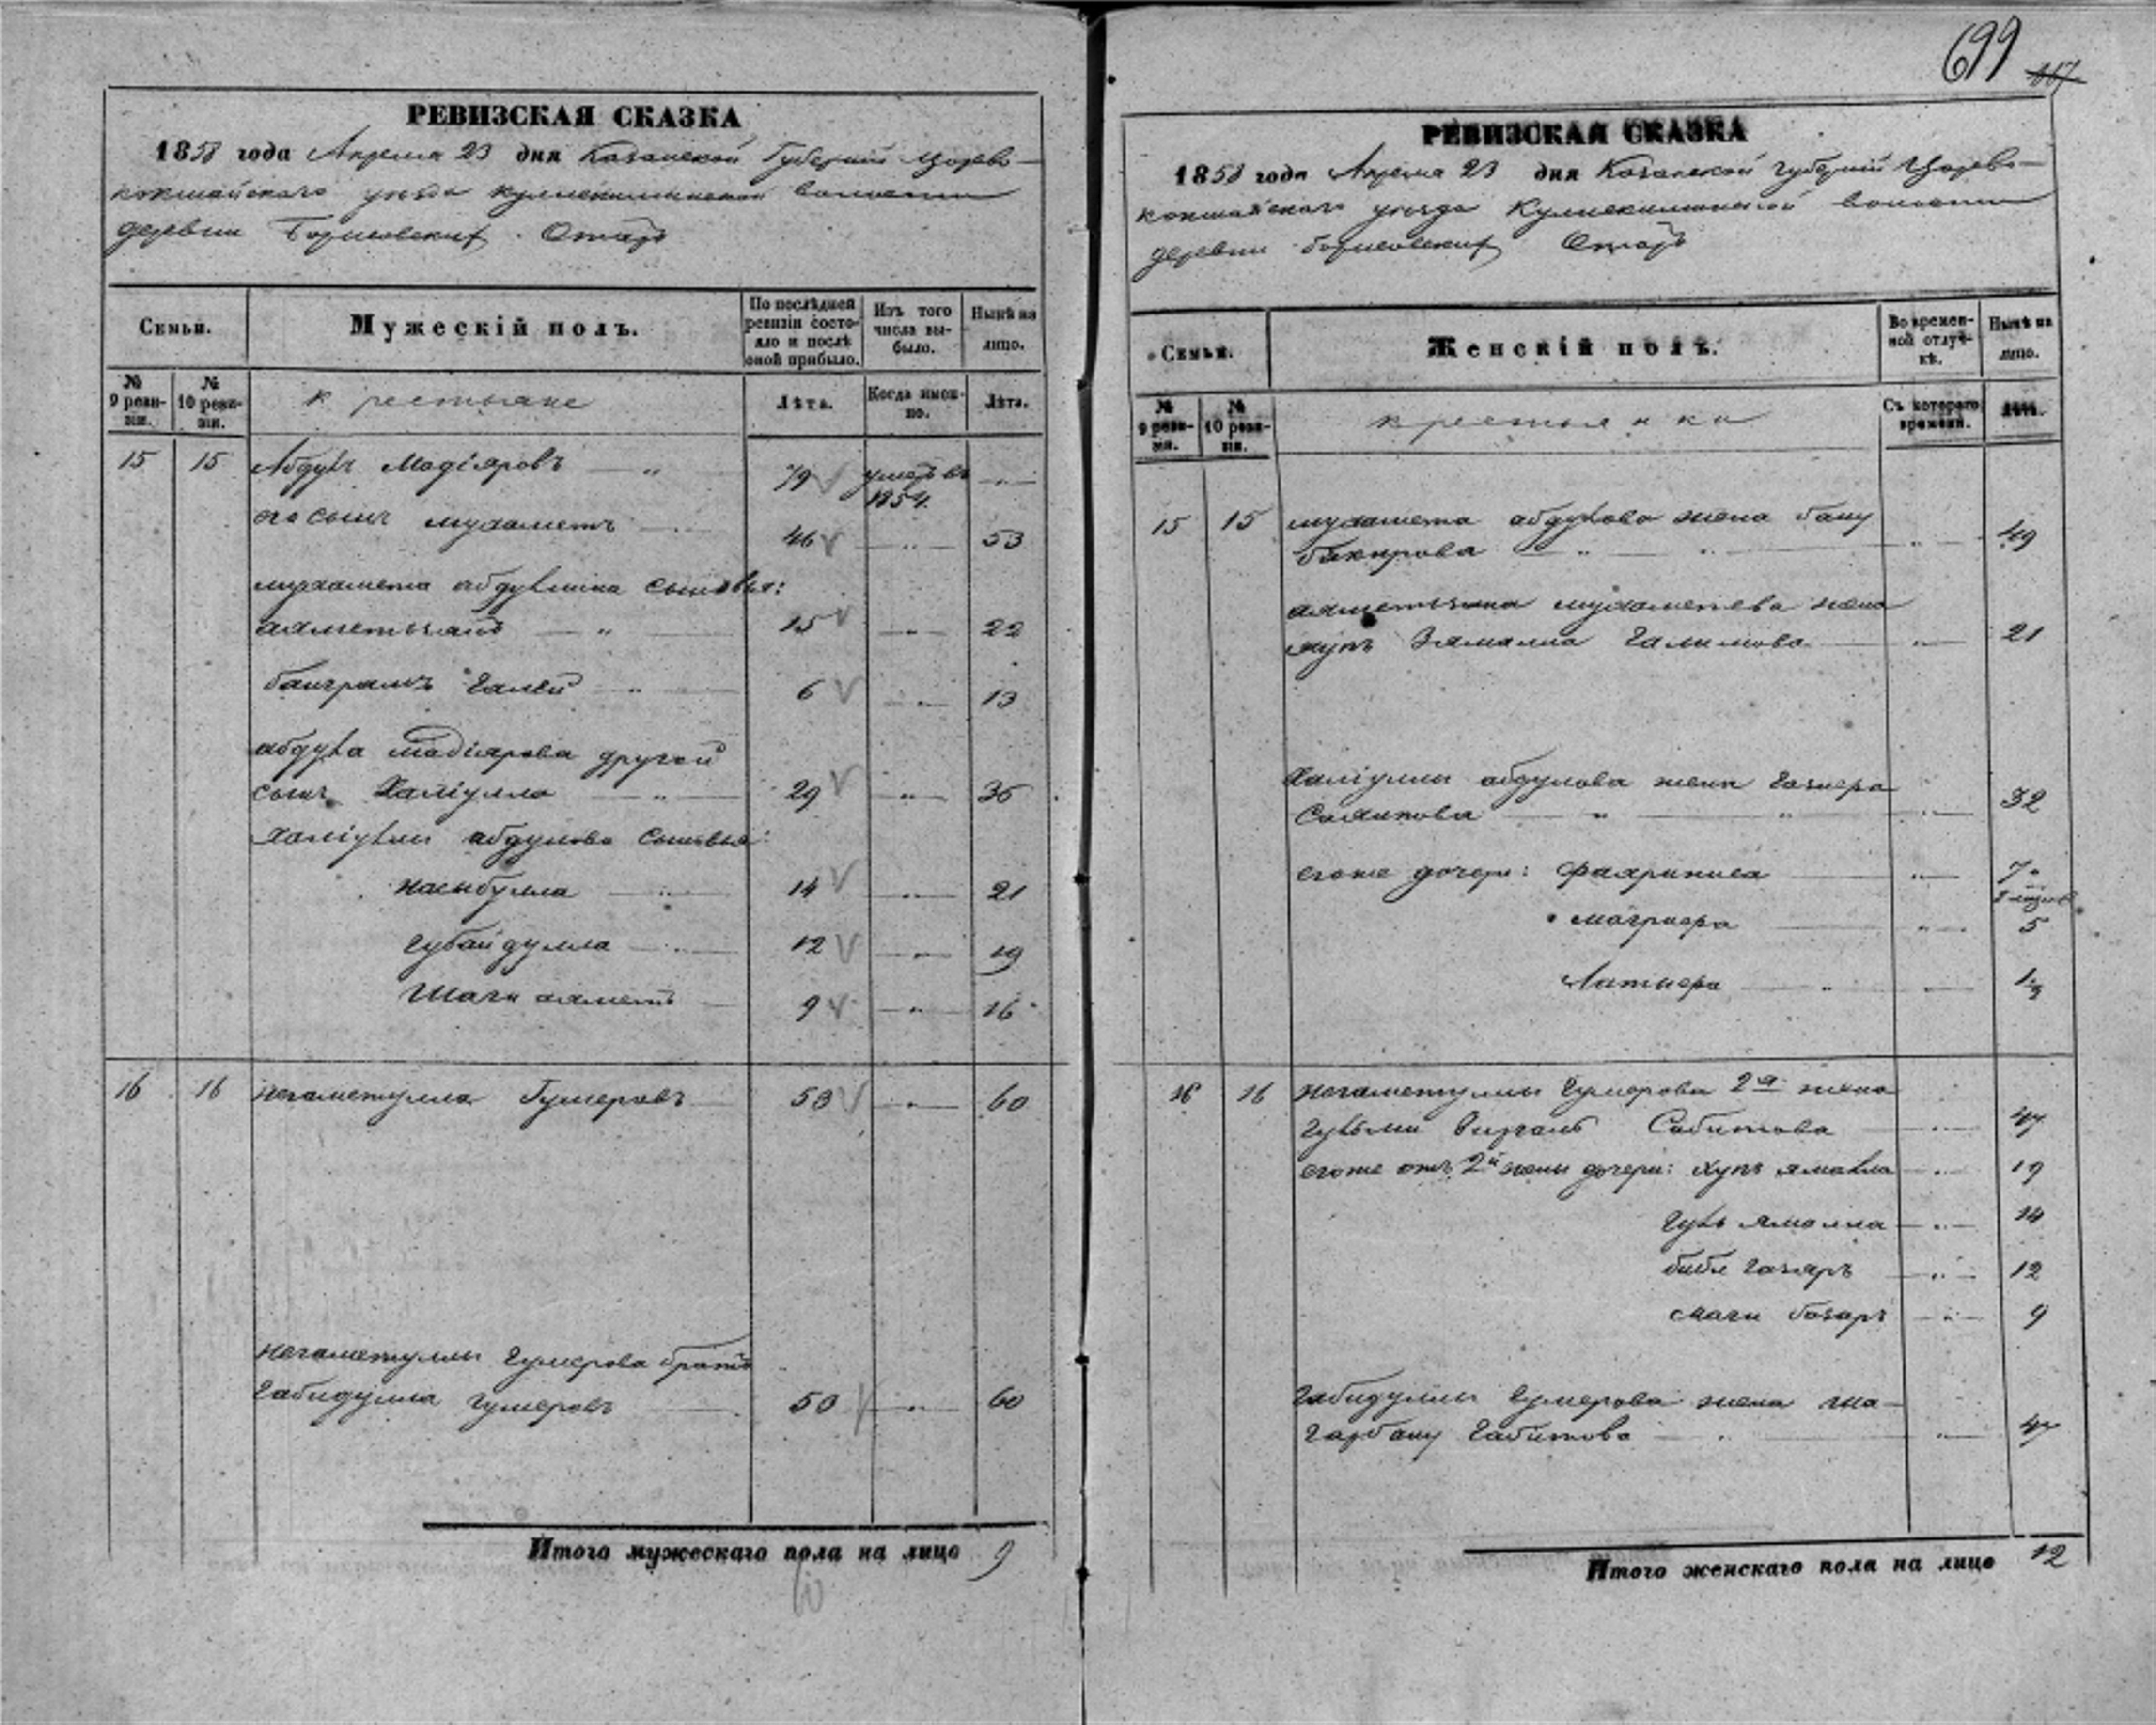 699 117
РЕВИЗСКАЯ СКАЗКА
1858 года Апреля 23 дня Казанской Губернии Царево-
кокшайскаго уезда волости
деревни Борисовских Отар
Семьи.
Мужескій полъ.
По послѣдней ревизіи состояло и послѣ оной прибыло.
Изъ того числа выбыло.
Нынѣ на лицо.
№ 9 ревизіи.
№ 10 ревизіи.
крестьяне
Лѣта.
Когда именно.
Лѣта.
15 15 Абдулъ Мадіяровъ — " 79 умеръ въ 1854 — " —
его сынъ мухаметъ — " 46 — " — 53
мухамета абдулвина сыновья:
ахметьзянъ — " — 15 — " — 22
баиграмъ Галей — " — 6 — " — 13
абдула мадіярова другой
сынъ Халіулла — " — 29 — " — 36
Халіуллы абдулова сыновья:
насыбулла — " — 14 — " — 21
губайдулла — " — 12 — " — 19
Шаги ахметъ — 9 — " — 16
16 16 негаметулла Гумеровъ — 53 — " — 60
негаметуллы Гумерова братъ
габидулла гумеровъ — 53 — " — 60
Итого мужескаго пола на лицо 9
10
РЕВИЗСКАЯ СКАЗКА
1858 года Апреля 23 дня Казанской губерніи Царево-
кокшайскаго уезда волости
деревни борисовских Отаръ
Семьи.
Женскій полъ.
Во временной отлучкѣ.
Нынѣ на лицо.
№ 9 ревизіи.
№ 10 ревизіи.
крестьянки
Съ котораго времени.
Лѣта.
15 15 мухамета абдулова жена бану
бикирова — " — " — " — 49
ахметьзяна мухаметева жена
хупъ Зямалла Галимова — " — 21
Халіуллы абдулова жена
— " — " — " — 32
егоже дочери: — " — 7
— " — 5
— " — " — 1
16 16 негаметуллы Гумерова 2я жена
Сабитова — " — 47
егоже отъ 2й жены дочери: хупъ ямалла — " — 19
гуль ямалла — " — 14
биби газяръ — " — 12
базаръ — " — 9
габидуллы гумерова жена ма-
гарбану Габитова — " — " — 47
Итого женскаго пола на лицо 12